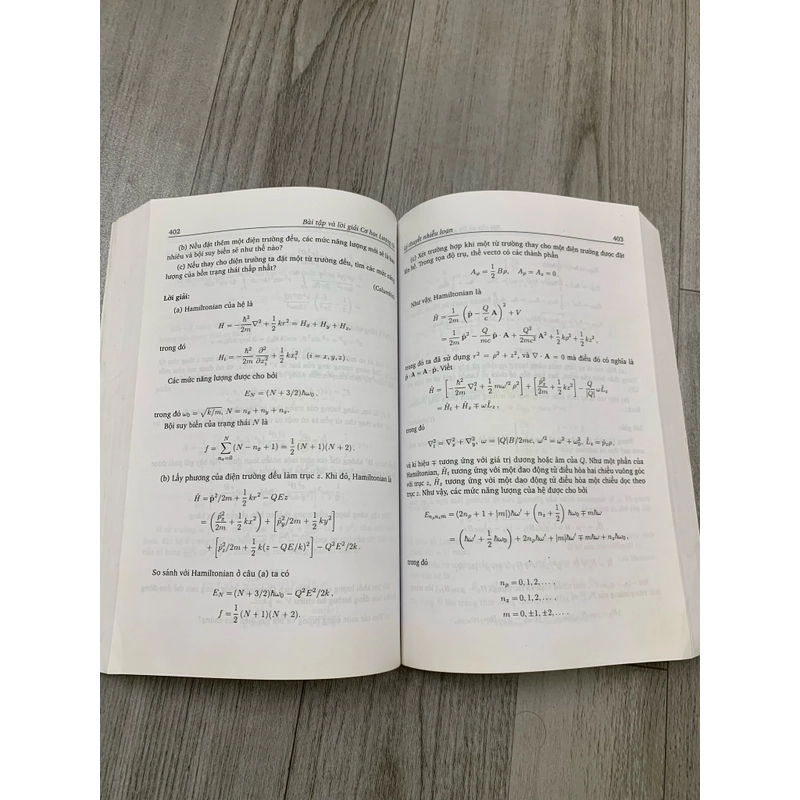 402 Bài tập và lời giải Cơ học Lượng
(b) Nếu đặt thêm một điện trường đều, các mức năng lượng mới sẽ là bao
nhiêu và bội suy biến sẽ như thế nào?
(c) Nếu thay cho điện trường ta đặt một từ trường đều, tìm các mức năng
lượng của bốn trạng thái thấp nhất?
(Columbia)
Lời giải:
(a) Hamiltonian của hệ là
H = -ħ²/2m ∇² + 1/2 kr² = Hx + Hy + Hz,
trong đó
Hi = -ħ²/2m ∂²/∂xi² + 1/2 kxi² (i = x, y, z).
Các mức năng lượng được cho bởi
EN = (N + 3/2)ħω0.
trong đó ω0 = √k/m, N = nx + ny + nz.
Bội suy biến của trạng thái N là
f = ∑(nx=0 → N) (N - nx + 1) = 1/2 (N + 1)(N + 2).
(b) Lấy phương của điện trường đều làm trục z. Khi đó, Hamiltonian là
Ĥ = p̂²/2m + 1/2 kr² - QEz
= (p̂x²/2m + 1/2 kx²) + [p̂y²/2m + 1/2 ky²]
+ [p̂z²/2m + 1/2 k(z - QE/k)²] - Q²E²/2k.
So sánh với Hamiltonian ở câu (a) ta có
EN = (N + 3/2)ħω0 - Q²E²/2k,
f = 1/2 (N + 1)(N + 2).
thuyết nhiễu loạn 403
(c) Xét trường hợp khi một từ trường thay cho một điện trường được đặt
lên hệ. Trong tọa độ trụ, thế vectơ có các thành phần
Aφ = 1/2 Bρ, Aρ = Az = 0.
Như vậy, Hamiltonian là
Ĥ = 1/2m (p̂ - Q/c A)² + V
= 1/2m p̂² - Q/mc p̂ · A + Q²/2mc² A² + 1/2 kρ² + 1/2 kz²,
trong đó ta đã sử dụng r² = ρ² + z², và ∇ · A = 0 mà điều đó có nghĩa là
p̂ · A = A · p̂. Viết
Ĥ = [-ħ²/2m ∇t² + 1/2 mω′² ρ²] + [p̂z²/2m + 1/2 kz²] - Q/|Q| ωL̂z
= Ĥt + Ĥz ∓ ωL̂z,
trong đó
∇t² = ∇x² + ∇y², ω = |Q|B/2mc, ω′² = ω² + ω0²,
và kí hiệu ∓ tương ứng với giá trị dương hoặc âm của Q. Như một phần của
Hamiltonian, Ĥt tương ứng với một dao động tử điều hòa hai chiều vuông góc
với trục z, Ĥz tương ứng với một dao động tử điều hòa một chiều dọc theo
trục z. Như vậy, các mức năng lượng của hệ được cho bởi
Enρnzm = (2nρ + 1 + |m|)ħω′ + (nz + 1/2) ħω0 ∓ mħω
= (ħω′ + 1/2 ħω0) + 2nρħω′ + |m|ħω′ ∓ mħω + nzħω0,
trong đó
nρ = 0, 1, 2, ....
nz = 0, 1, 2, ....
m = 0, ±1, ±2, ....